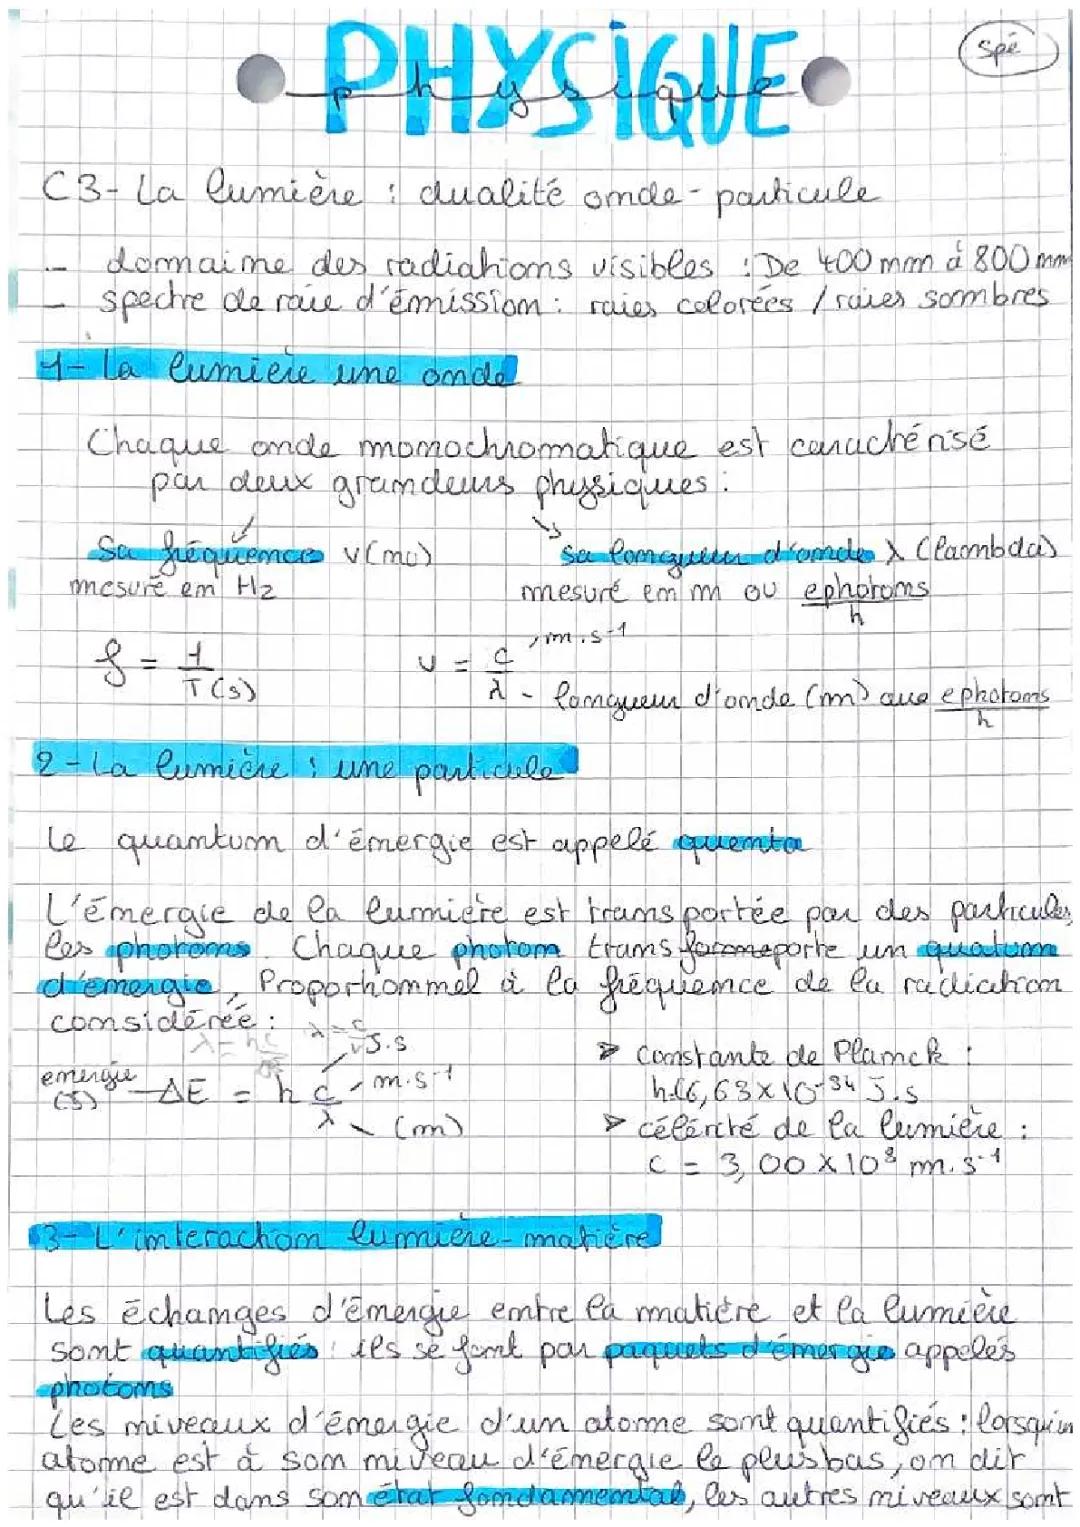 PHYSIQUE
physique
Spé
C3- La lumière : dualité onde-particule
- domaine des radiations visibles : De 400 nm à 800 nm
- spectre de raie d'émission : raies colorées / raies sombres
1- La lumière une onde
Chaque onde monochromatique est caractérisé
par deux grandeurs physiques :
sa fréquence ν (nu)
sa longueur d'onde λ (lambda)
mesuré en Hz
mesuré en m ou ephotons/h
f = 1/T(s)
ν = c/λ , m.s-1
- longueur d'onde (m) ephotons/h
2- La lumière : une particule
Le quantum d'énergie est appelé quenta
L'énergie de la lumière est transportée par des particules,
les photons. Chaque photon transporte un quatum
d'énergie, Proportionnel à la fréquence de la radiation
considérée :
λ = c/ν
J.s
energie (J)
ΔE = h c/λ
m.s-1
(m)
➤ constante de Planck :
h=6,63×10-34 J.s
➤ célérité de la lumière :
c = 3,00×10⁸ m.s-1
3- L'interaction lumière-matière
Les échanges d'énergie entre la matière et la lumière
sont quantifiés : ils se font par paquets d'énergie appelés
photons
Les niveaux d'énergie d'un atome sont quantifiés : lorsqu'un
atome est à son niveau d'énergie le plus bas, on dit
qu'il est dans son état fondammental, les autres niveaux sont